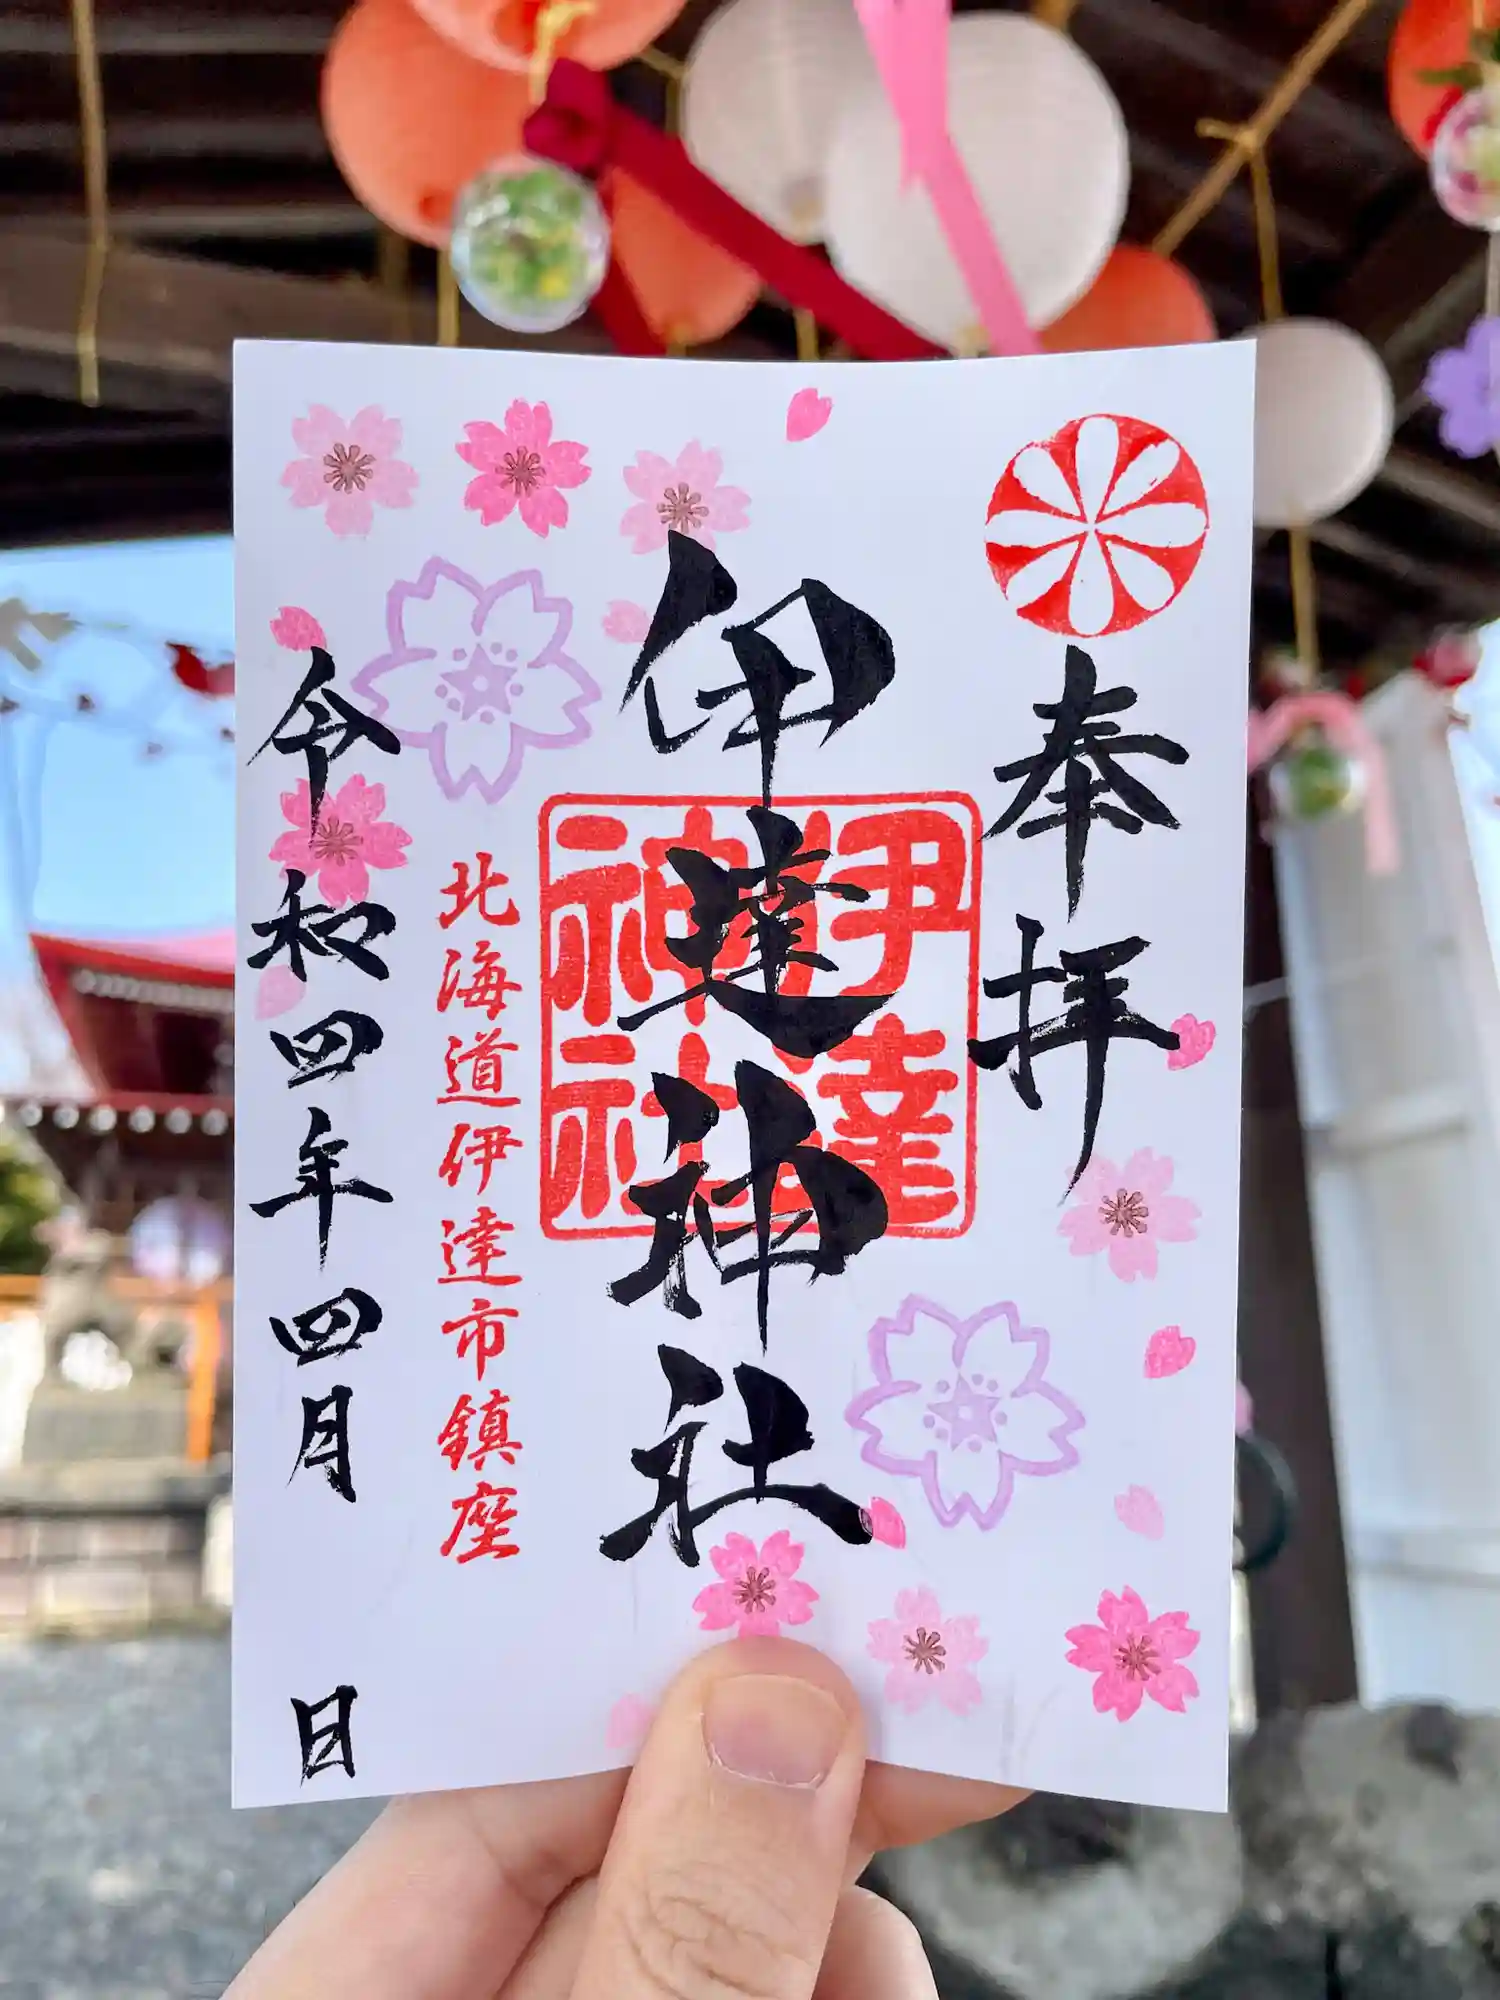 奉拝
伊達神社
伊達
神社
北海道伊達市鎮座
令和四年四月 日